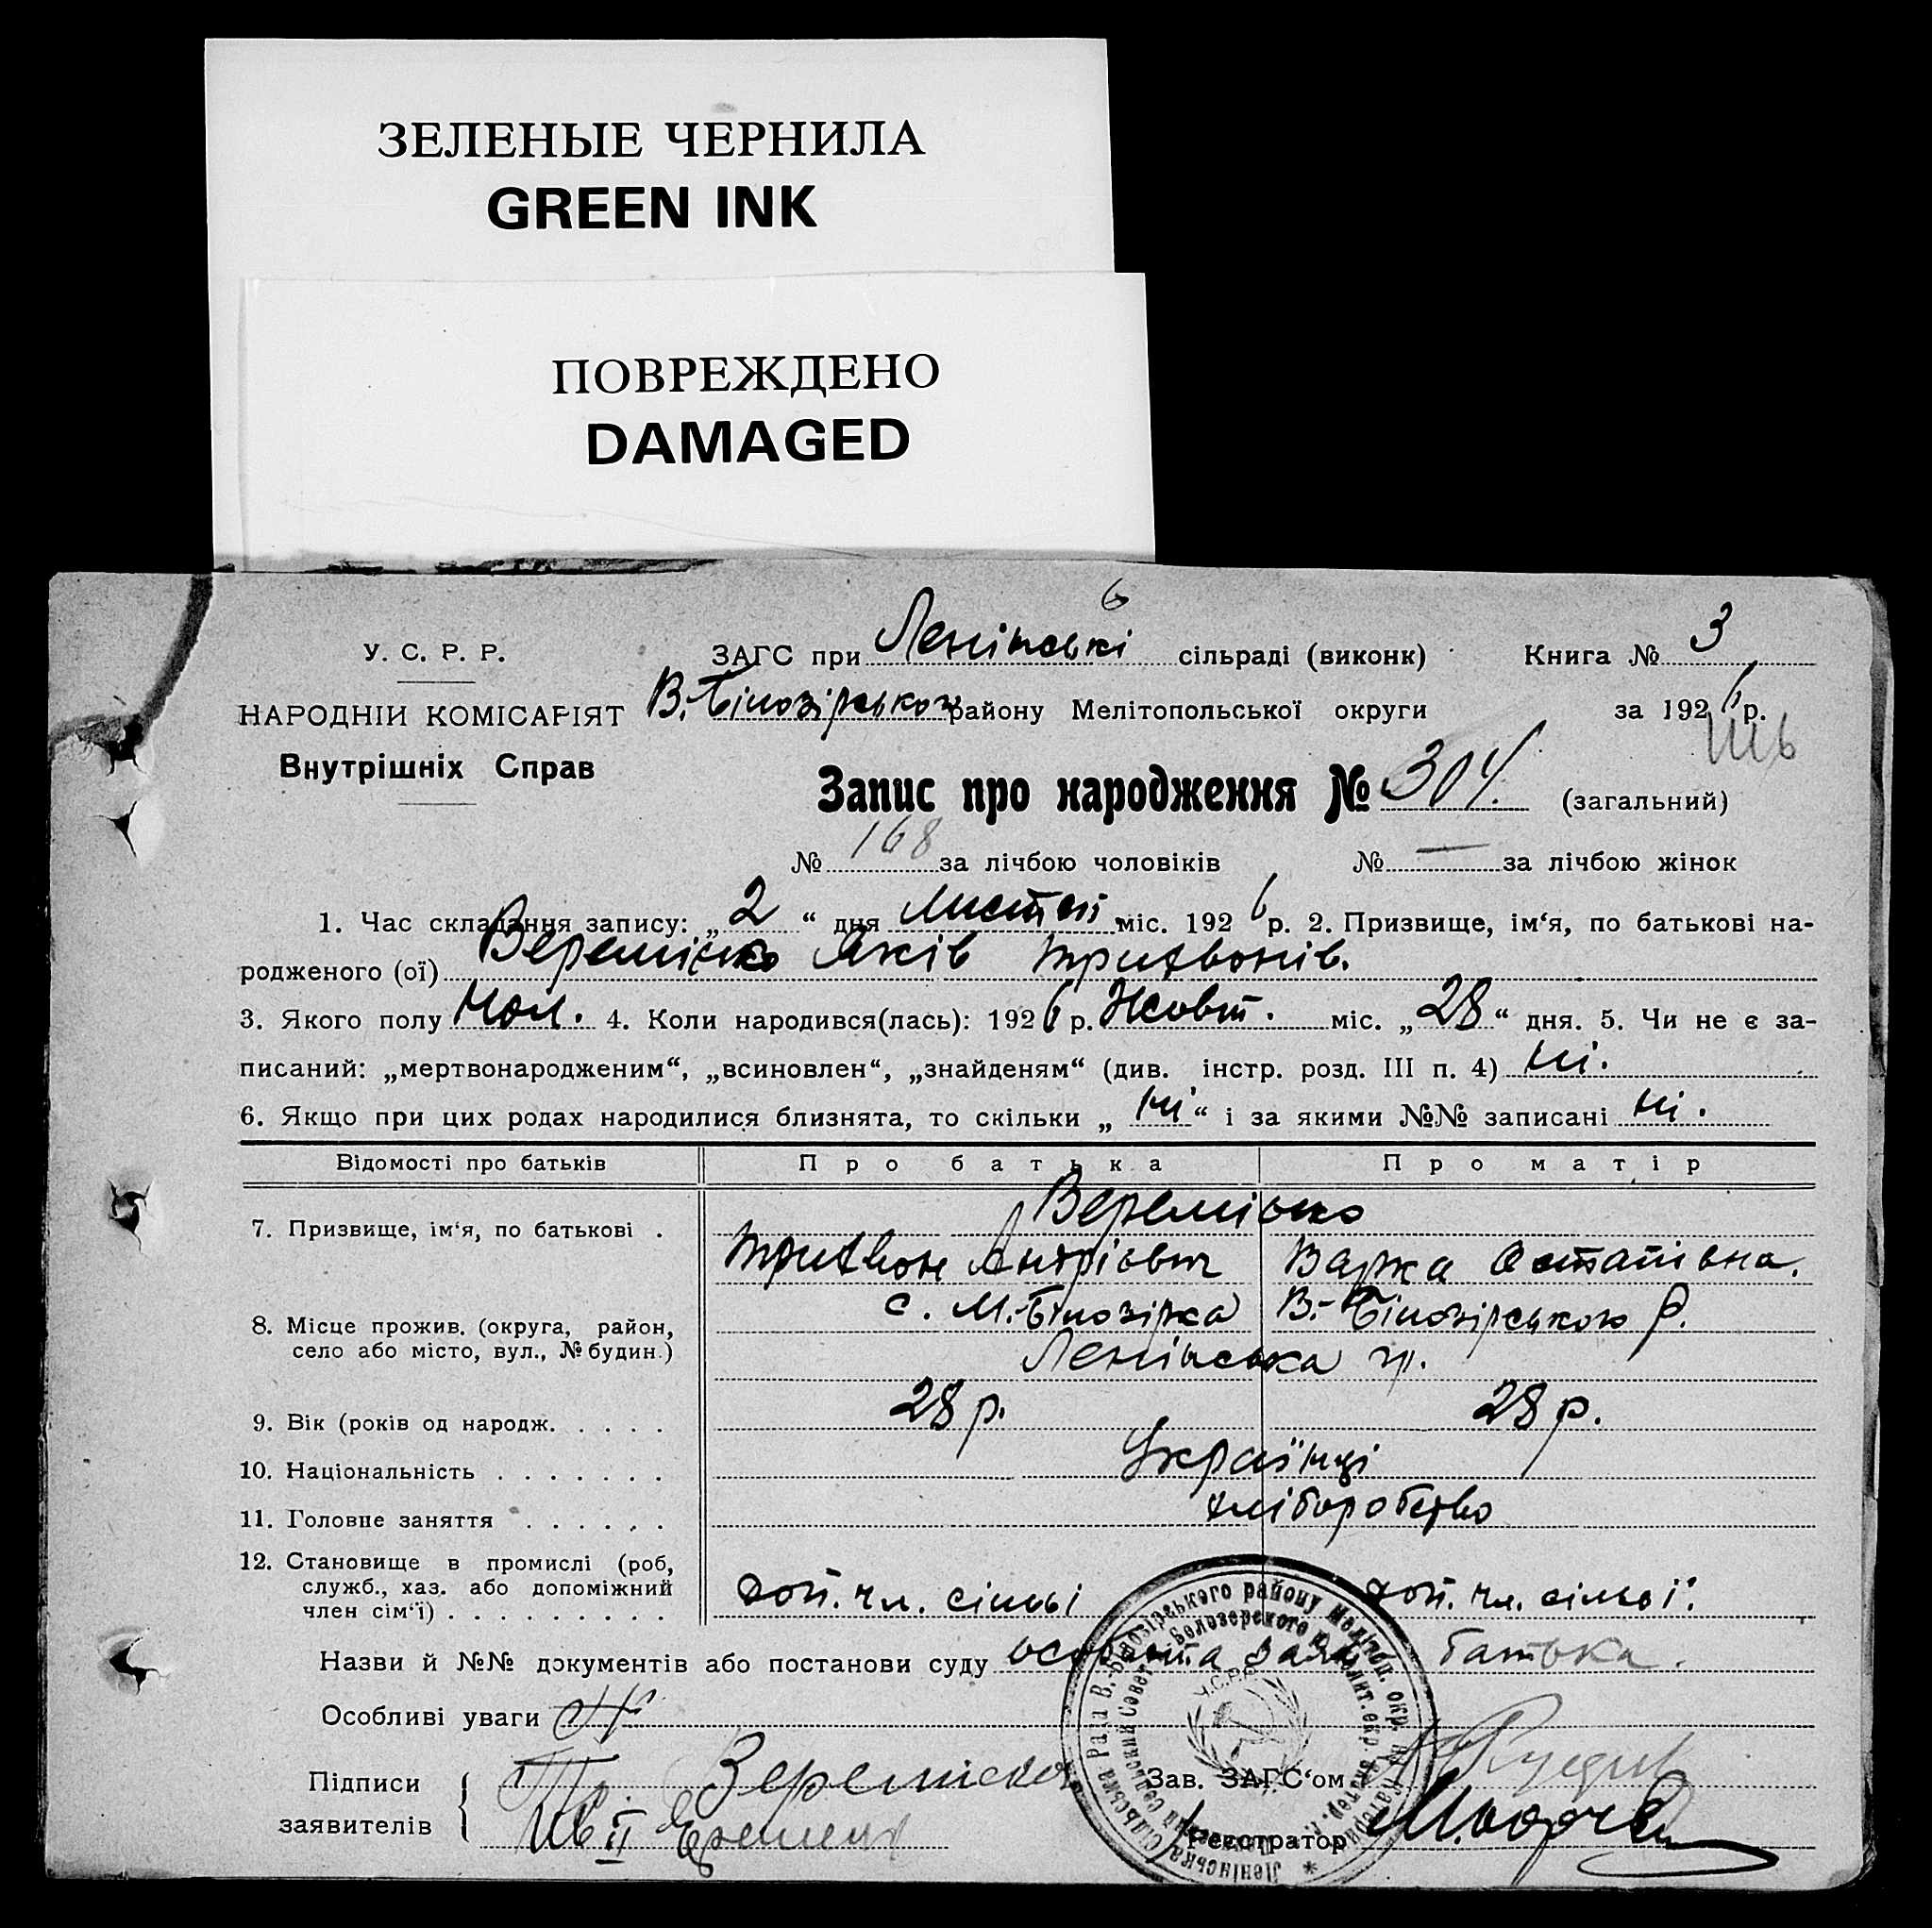 ЗЕЛЕНЫЕ ЧЕРНИЛА
GREEN INK
ПОВРЕЖДЕНО
DAMAGED
6
У. С. Р. Р. ЗАГС при Ленінські сільраді (виконк) Книга № 3
НАРОДНІИ КОМІСАРІЯТ В.-Білозірського району Мелітопольської округи за 1926 р.
Внутрішніх Справ
Запис про народження № 304. (загальний)
№ 168 за лічбою чоловіків № — за лічбою жінок
1. Час складання запису: „2“ дня Листоп. міс. 1926 р. 2. Призвище, ім‘я, по батькові на-
родженого (ої) Веремієнко Яків Трихвонів.
3. Якого полу Чол. 4. Коли народився(лась): 1926 р. Жовт. міс. „28“ дня. 5. Чи не є за-
писаний: „мертвонародженим“, „всиновлен“, „знайденям“ (див. інстр. розд. III п. 4) ні.
6. Якщо при цих родах народилися близнята, то скільки „ні“ і за якими №№ записані ні.
Відомості про батьків Про батька Про матір
Веремієнко
7. Призвище, ім‘я, по батькові . Трихвон Андрієвич Варка Остапівна.
8. Місце прожив. (округа, район, с. М.-Білозірка В.-Білозірського р.
село або місто, вул., № будин.) Ленінська
9. Вік (років од народж. . . . . 28 р. 28 р.
10. Національність . . . . . . . Українці
11. Головне заняття . . . . . . хліборобство
12. Становище в промислі (роб,
служб., хаз. або допоміжний доп. чл. сімьї доп. чл. сімьї.
член сім‘ї) . . . . . . . . .
Назви й №№ документів або постанови суду особиста заява батька.
Особливі уваги
Підписи Зав. ЗАГС‘ом
заявителів Реєстратор
Ленінська Сільська Рада В.-Білозірського району Мелітоп. окр.
У.С.Р.Р.